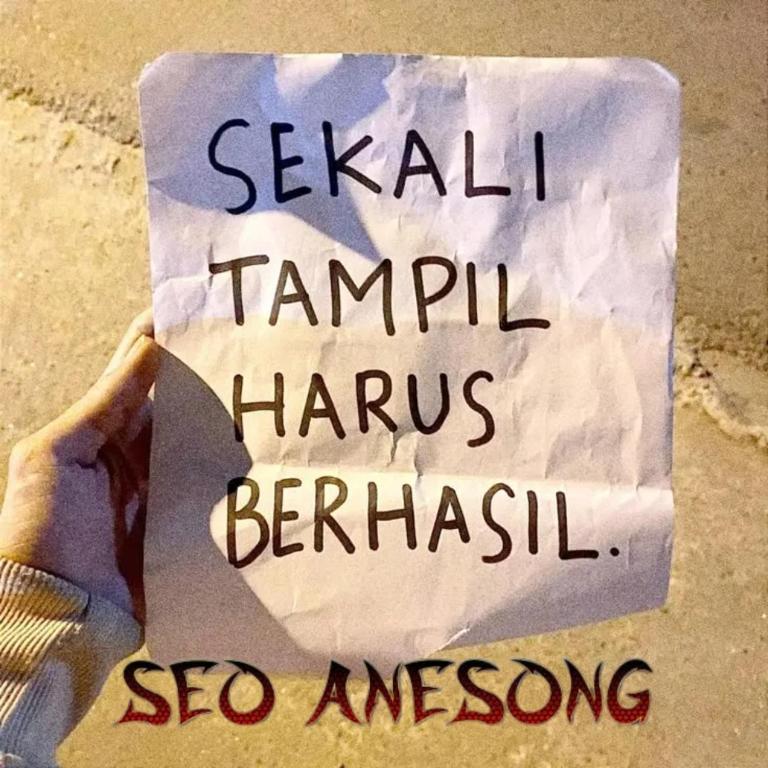 SEKALI
TAMPIL
HARUS
BERHASIL.
SEO ANESONG